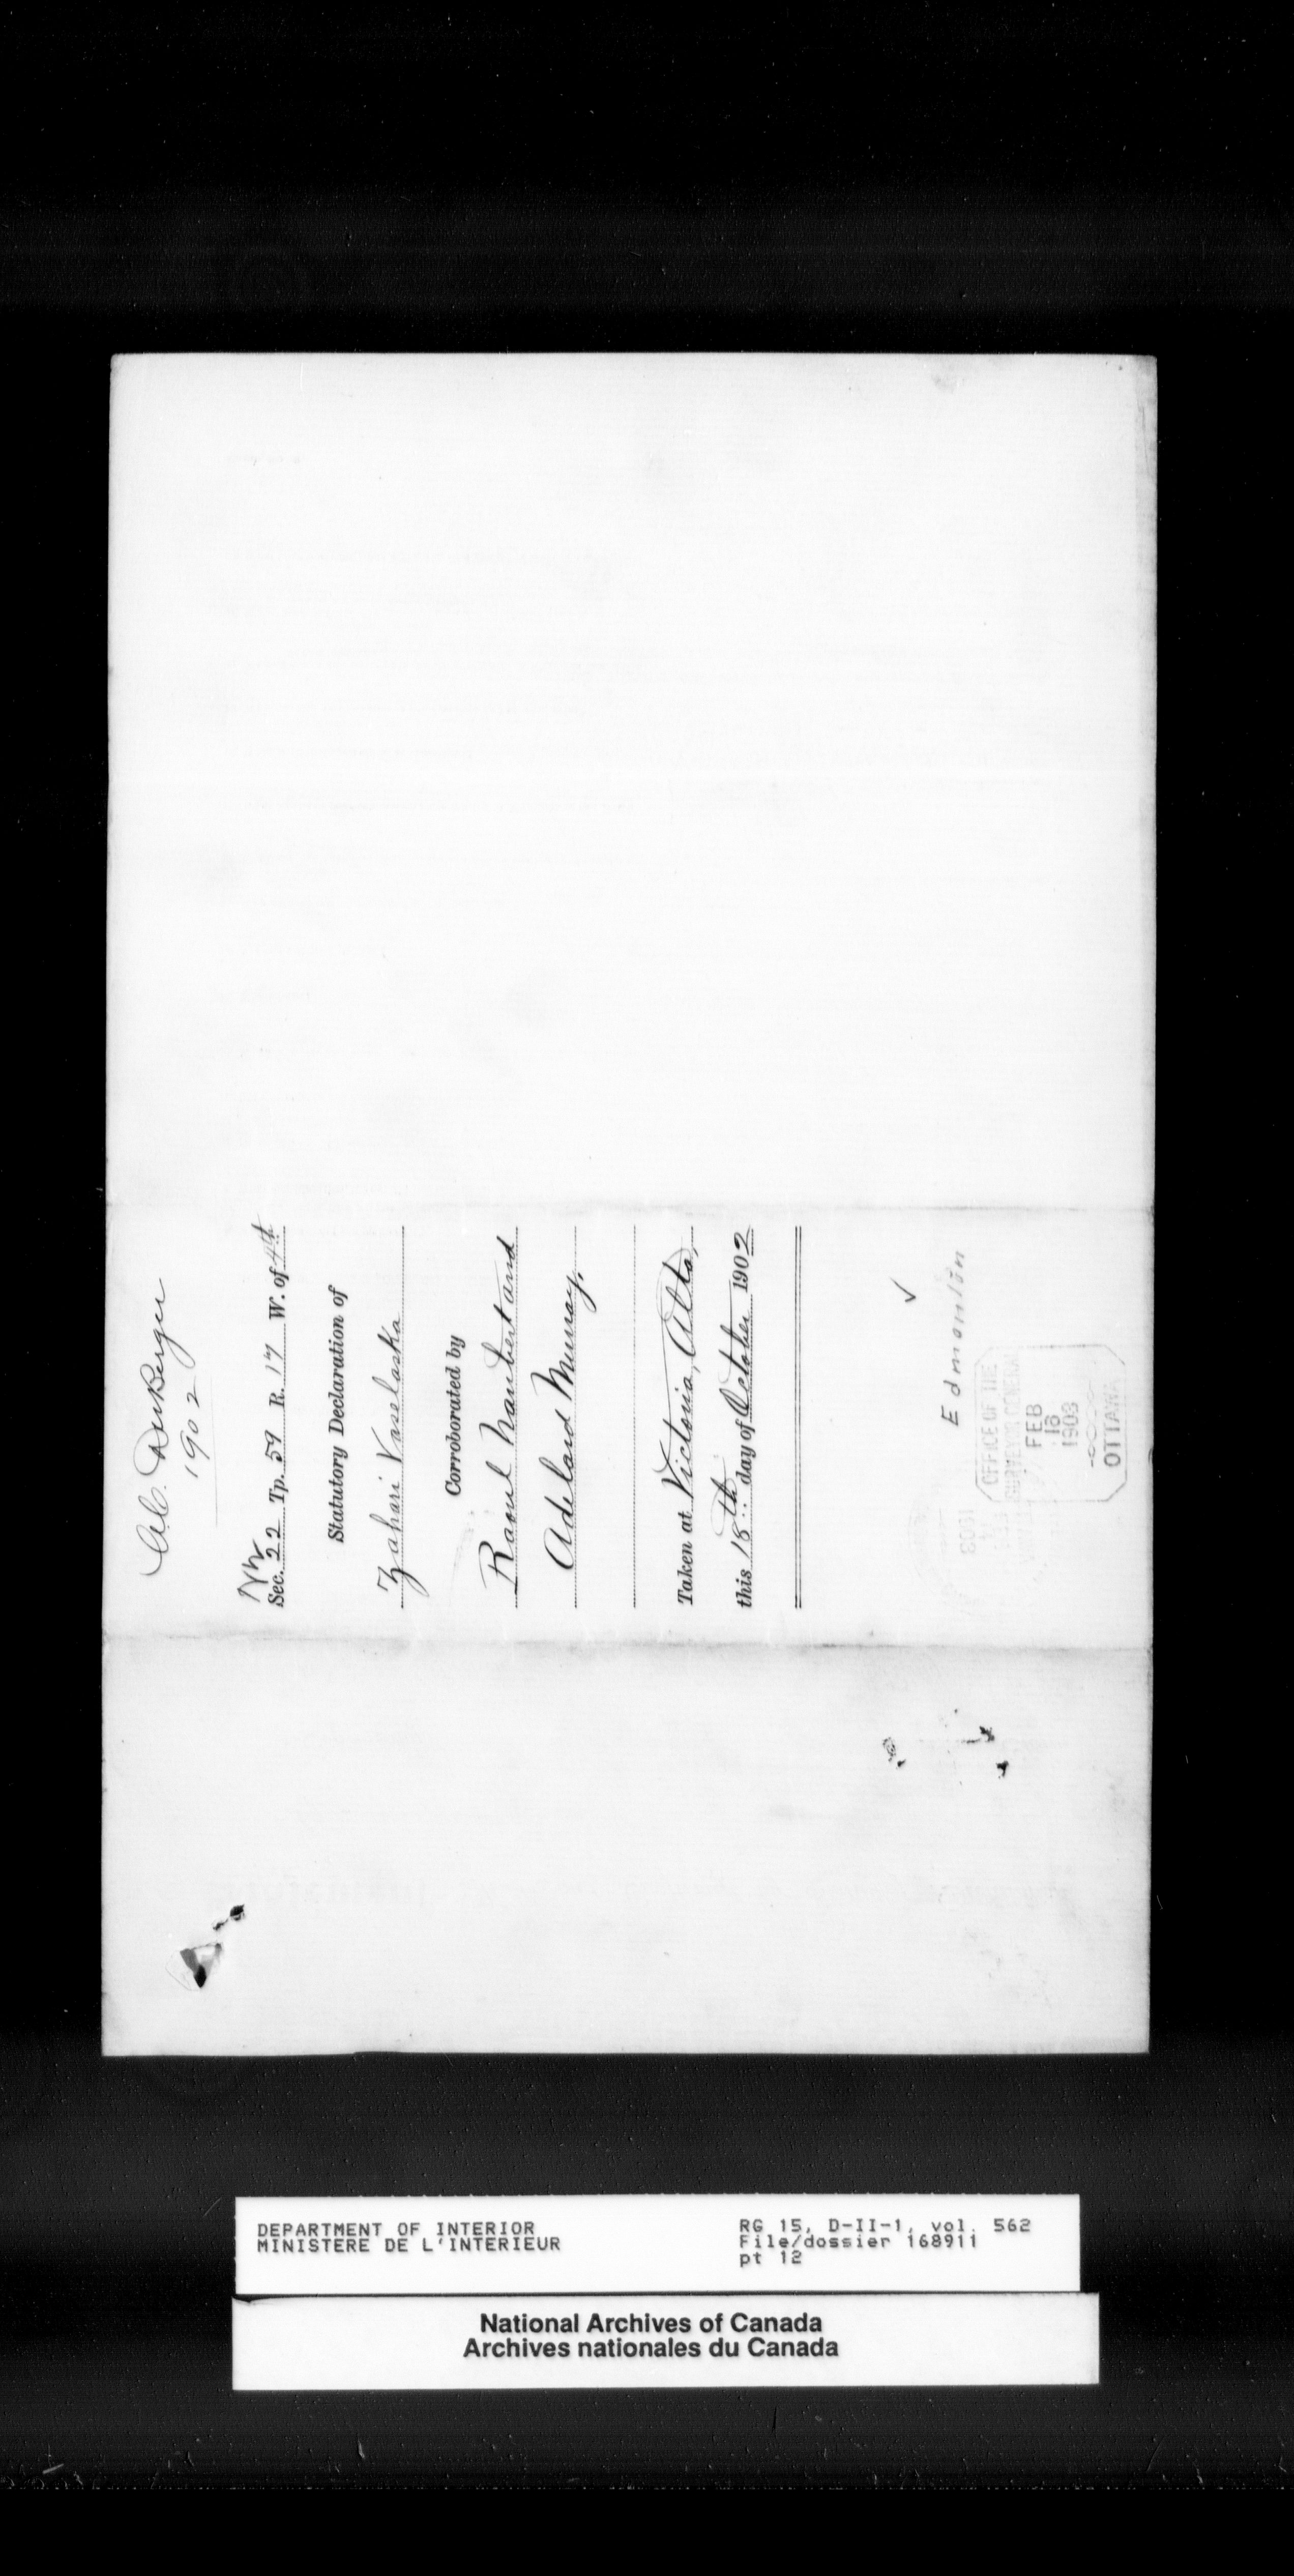 A.C. DuBerger
1902
NW
Sec. 22 Tp. 59 R. 17 W. of 4th
Statutory Declaration of
Zahari Vaselaska
Corroborated by
Raoul Naubert and
Adelard Murray,
Taken at Victoria, Alta,
this 18th day of October 1902
✓
Edmonton
OFFICE OF THE
SURVEYOR GENERAL
FEB
18
1903
OTTAWA
DEPARTMENT OF INTERIOR
MINISTERE DE L'INTERIEUR
RG 15, D-II-1, vol. 562
File/dossier 168911
pt 12
National Archives of Canada
Archives nationales du Canada